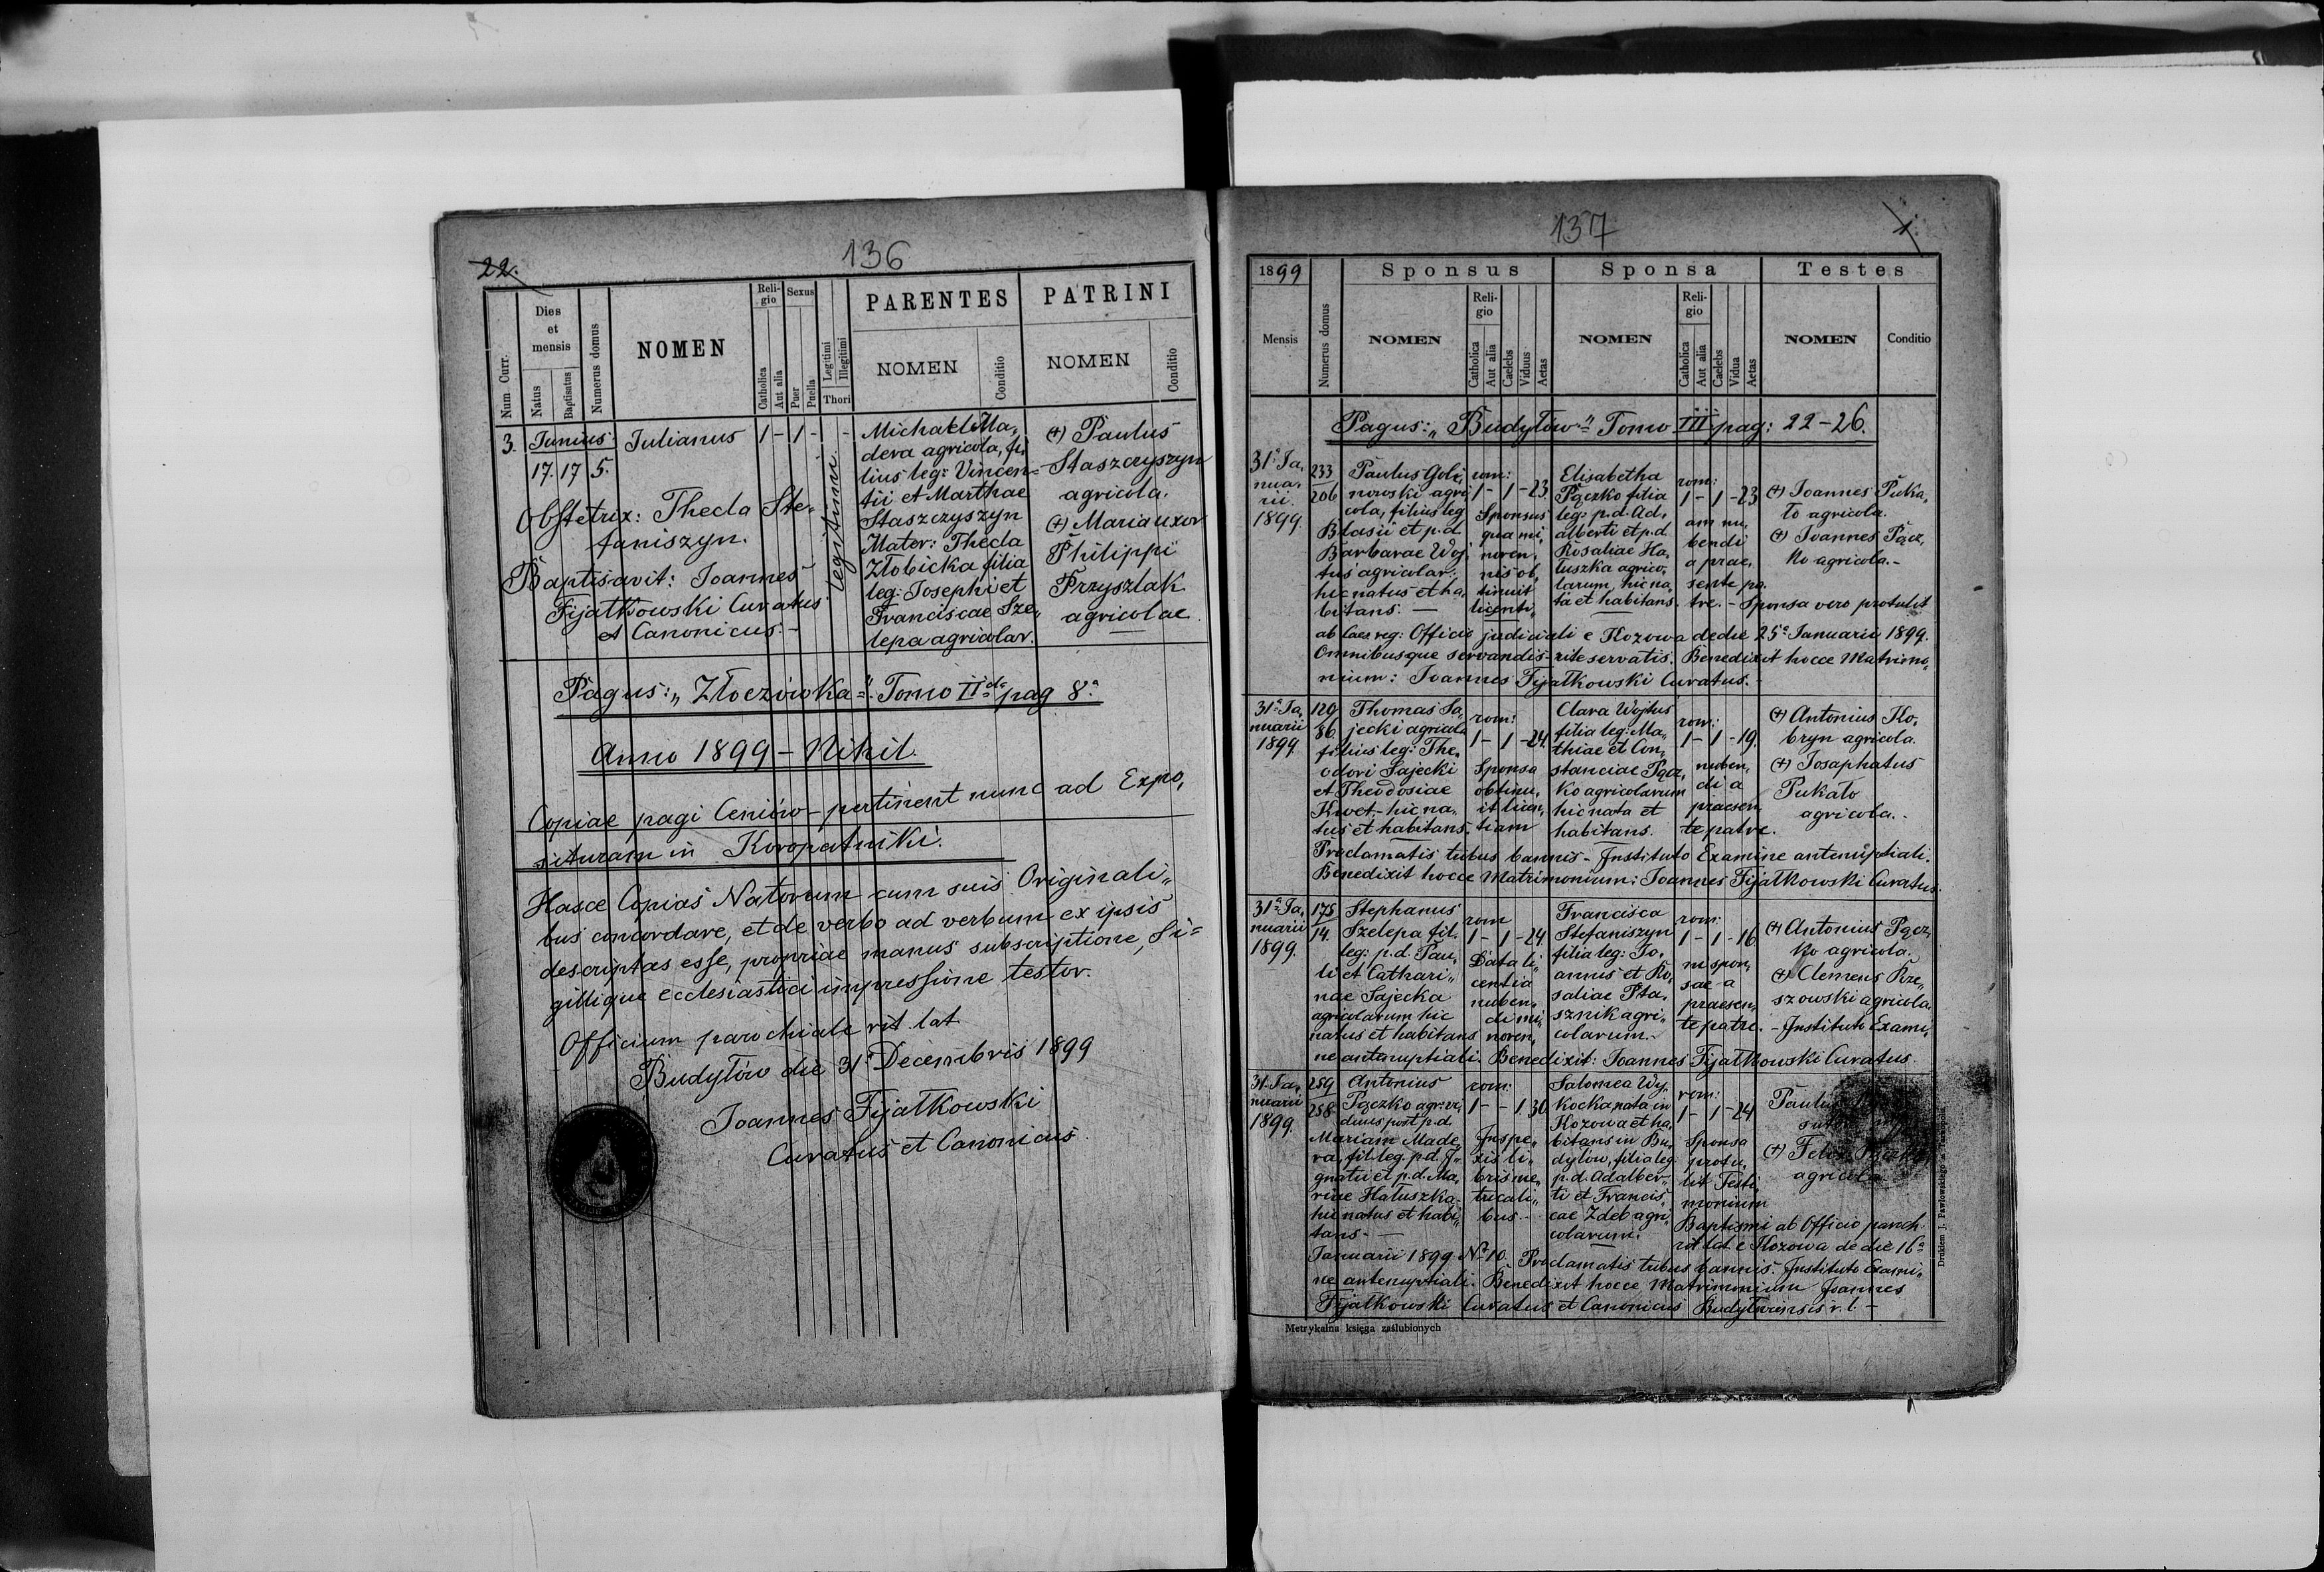 136
22.
Num. Curr.
Dies et mensis
Natus
Baptisatus
Numerus domus
NOMEN
Religio
Catholica
Aut alia
Sexus
Puer
Puella
Legitimi
Illegitimi
Thori
PARENTES
NOMEN
Conditio
PATRINI
NOMEN
Conditio
3. Junius. Julianus 1 - 1 - -
17. 17 5.
Obstetrix: Thecla Ste„
faniszyn.
Baptisavit: Joannes
Fijałkowski Curatus
et Canonicus.-
legitimi.
Michael Ma„
dera agricola, fi
lius leg: Vincen=
tii et Marthae
Staszczyszyn
Mater: Thecla
Złobicka filia
leg: Josephi et
Franciscae Sze„
lepa agricolar.
(+) Paulus
Staszczyszyn
agricola.
(+) Maria uxor
Philippi
Przyszlak
agricolae
Pagus: „Złoczówka". Tomo II do pag 8.a
Anno 1899 - Nihil.
Copiae pagi Ceniów - pertinent nunc ad Expo„
situram in Koropatniki.
Hasce Copias Natorum cum suis Originali„
bus concordare, et de verbo ad verbum ex ipsis
descriptas esse, propriae manus subscriptione, Si=
gillique ecclesiastici impressione testor.
Officium parochiale rit. lat
Budyłów die 31a Decembris 1899
Joannes Fijałkowski
Curatus et Canonicus.
137
1.
1899
Mensis
Numerus domus
Sponsus
NOMEN
Religio
Catholica
Aut alia
Caelebs
Viduus
Aetas
Sponsa
NOMEN
Religio
Catholica
Aut alia
Caelebs
Vidua
Aetas
Testes
NOMEN
Conditio
Pagus: „Budyłów" Tomo III pag: 22-26.
31a Ja„
nua„
rii
1899.
233
206
Paulus Goli„
nowski agri
cola, filius leg
Blasii et p.d
Barbarae Woj„
tus agricolar.
hic natus et ha„
bitans. -
rom:
1 - 1 - 23.
Sponsus
qua mi„
noren„
nis ob„
tinuit
licenti„
Elisabetha
Pączko filia
leg: p.d. Ad„
alberti et p.d
Rosaliae Ha„
łuszka agrico„
larum, hic na„
ta et habitans.
rom:
1 - 1 - 23
am nu„
bendi
a prae„
sente pa„
tre. - Sponsa vero protulit
(+) Joannes Puka„
ło agricola.
(+) Joannes Pącz„
ko agricola.-
ab Caes reg: Officio judiciali e Kozowa de die 25a Januarii 1899.
Omnibusque servandis rite servatis. Benedixit hocce Matrimo„
nium: Joannes Fijałkowski Curatus.-
31a Ja„
nuarii
1899.
129
86.
Thomas Sa„
jecki agricola
filius leg: The„
odori Sajecki
et Theodosiae
Kwet - hic na„
tus et habitans.
rom:
1 - 1 - 24.
Sponsa
obtinu„
it licen„
tiam
Clara Wojtus
filia leg: Ma„
thiae et Con„
stanciae Pącz„
ko agricolarum
hic nata et
habitans.
rom:
1 - 1 - 19.
nuben„
di a
praesen„
te patre.
(+) Antonius Ko„
bryn agricola.
(+) Josaphatus
Pukało
agricola.-
Proclamatis tribus bannis - Instituto Examine antenuptiali.
Benedixit hocce Matrimonium: Joannes Fijałkowski Curatus.
31a Ja„
nuarii
1899.
175
14.
Stephanus
Szelepa fil.
leg: p.d. Pau„
li et Cathari„
nae Sajecka
agricolarum hic
natus et habitans
rom
1 - 1 - 24
Data li„
centia
nuben„
di mi„
noren„
Francisca
Stefaniszyn
filia leg: Jo„
annis et Ro„
saliae Pta„
sznik agri„
colarum.-
rom:
1 - 1 - 16
ni spon„
sae a
praesen„
te patre. - Instituto Exami„
(+) Antonius Pącz„
ko agricola.
(+) Clemens Rze„
szowski agricola.
ne antenuptiali. Benedixit: Joannes Fijałkowski Curatus.
31. Ja„
nuarii
1899.
259
258.
Antonius
Pączko agr: vi„
duus post p.d
Mariam Made„
ra, fil. leg. p.d. I„
gnatii et p.d. Ma„
riae Hałuszka.
hic natus et habi„
tans.-
rom:
1 - - 1. 30
Inspe„
xis li„
bris me„
tricali„
bus.-
Salomea Wy„
kocka nata in
Kozowa et ha„
bitans in Bu„
dyłów, filia leg.
p.d. Adalber„
ti et Francis„
cae Zdeb agri„
colarum.
rom:
1 - 1 - 24
Sponsa
protu„
lit Testi
monium
Baptismi ab Officio paroch:
rit lat e Kozowa de die 16a
Paulus
(+) Felix
agricola
Januarii 1899 No 10. Proclamatis tribus bannis. Instituto Exami„
ne antenuptiali. Benedixit hocce Matrimonium Joannes
Fijałkowski Curatus et Canonicus Budyłoviensis r. l. -
Metrykalna księga zaślubionych